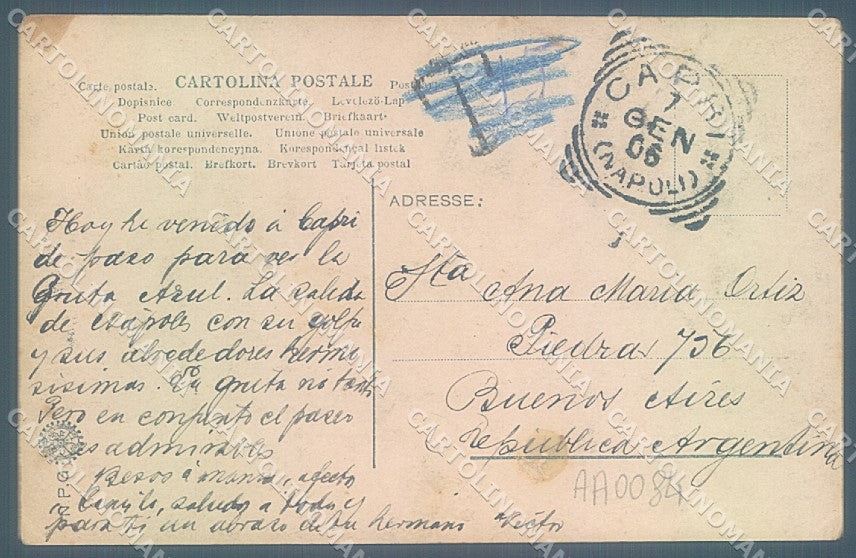 CARTOLINA POSTALE
Carte postale. Pos
Dopisnice Correspondenzkarte. Levelező-Lap
Post card. Weltpostverein. Briefkaart
Union postale universelle. Unione postale universale
Karta korespondencyjna. Korespondenčni listek
Cartão postal. Brefkort. Brevkort Tarjeta postal
T
CAPRI
7
GEN
06
(NAPOLI)
Hoy he venido á Capri
de paso para ver la
Gruta Azul. La salida
de Nápoles con su golfo
y sus alrededores hermo
sisimos. La gruta no tanto
Pero en conjunto el paseo
es admirable
Besos á mamá, afecto
saludos a todos y
para ti un abrazo de tu hermano Victor
ADRESSE:
Sta Ana Maria Ortiz
Piedras 736
Buenos Aires
Republica Argentina
AA0084
CARTOLINOMANIA